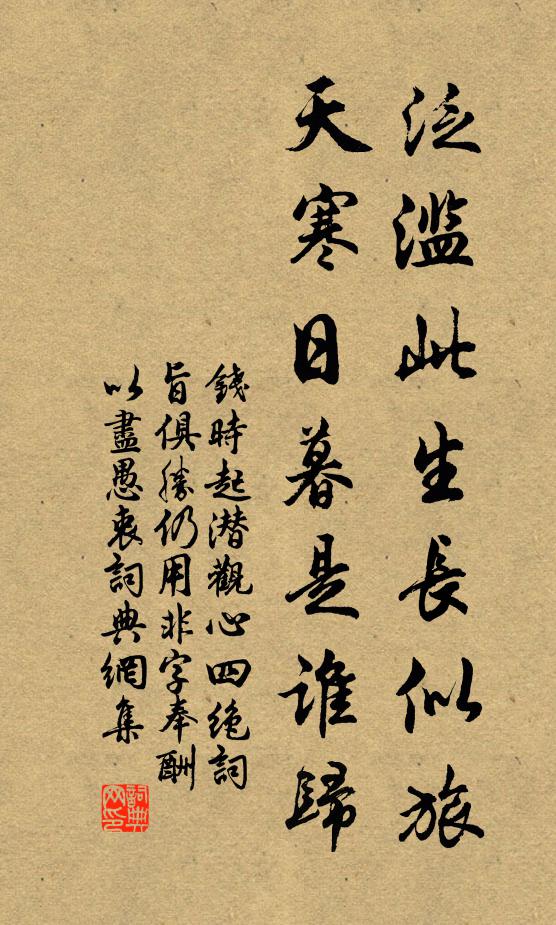 泛濫此生長似旅
天寒日暮是誰歸
錢時起潜觀心四絶詞
旨俱勝仍用非字奉酬
以盡愚衷詞典網集
詞典
网印